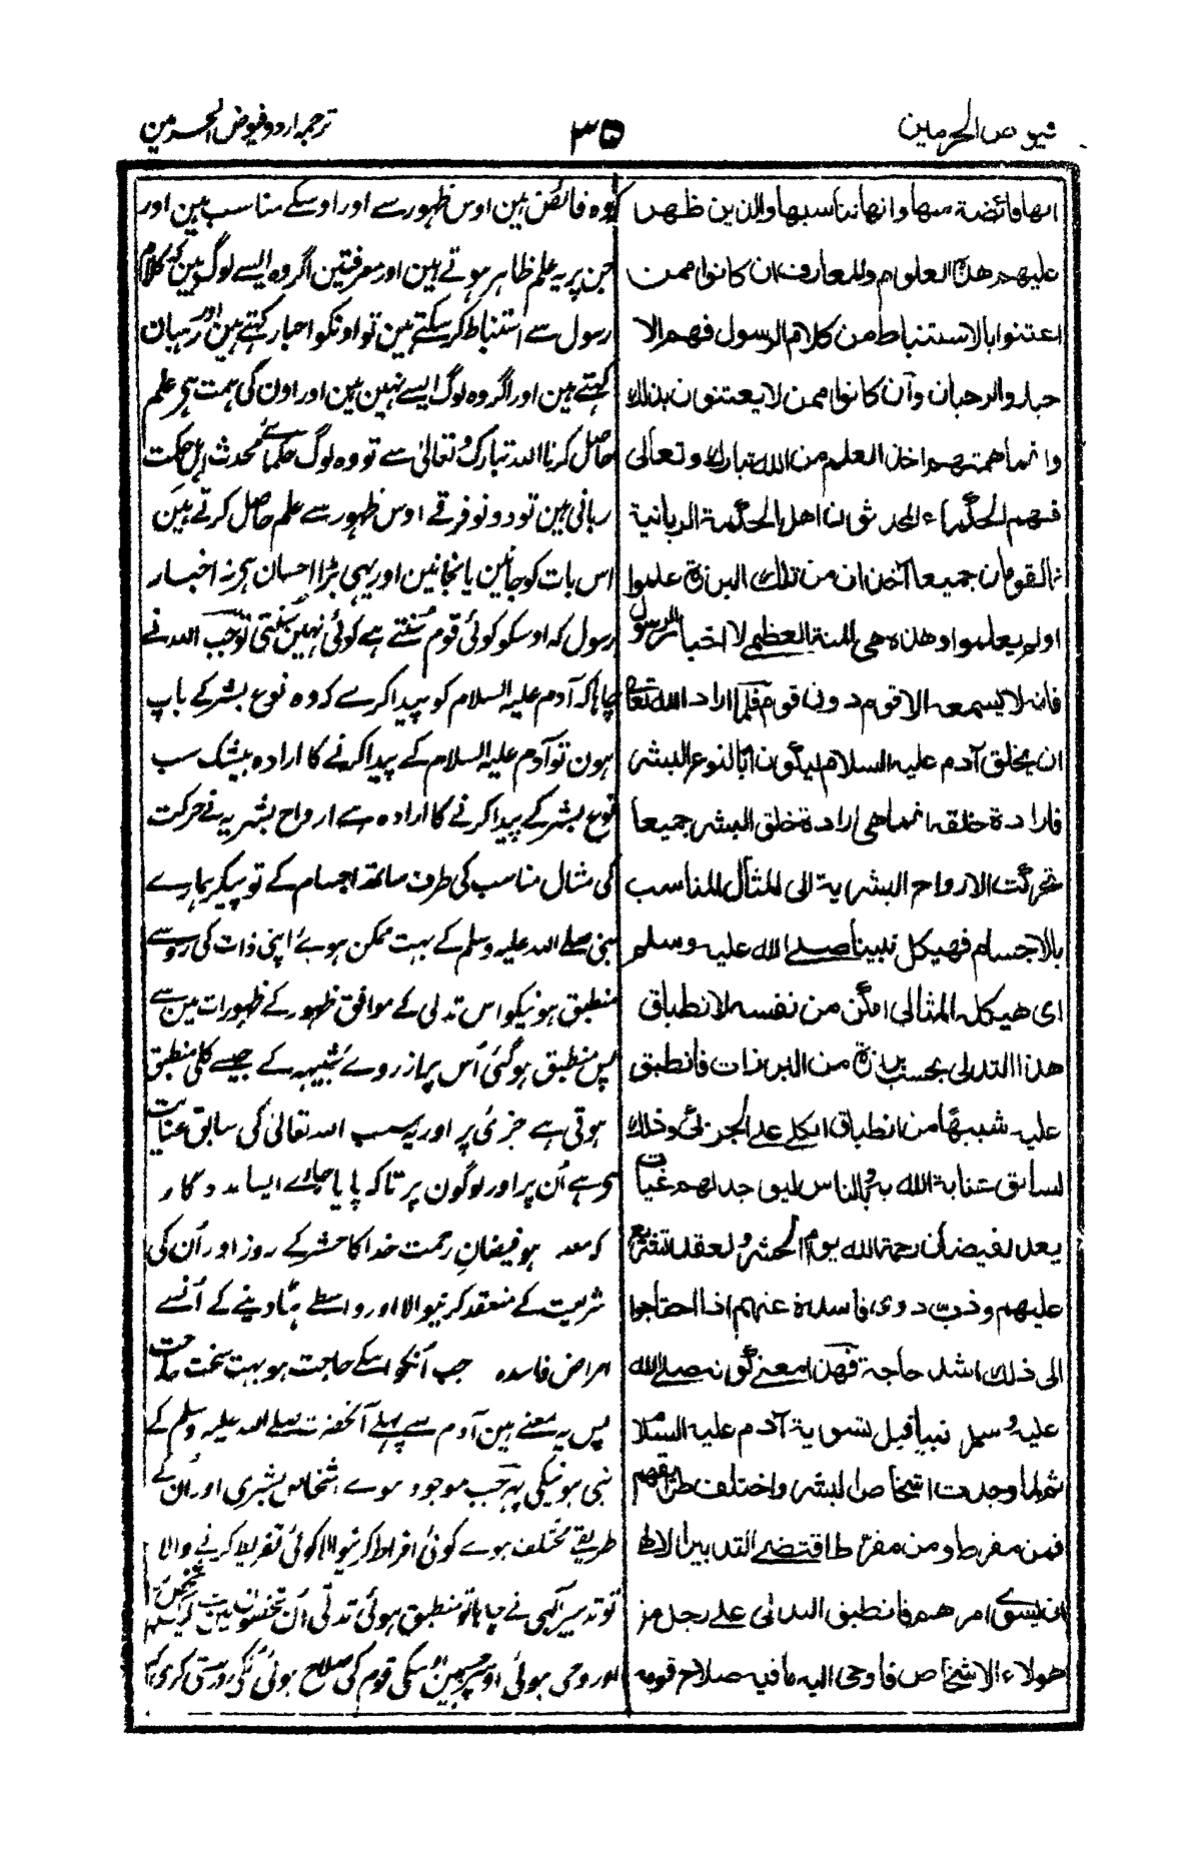 فیوض الحرمین
۳۵
ترجمہ اردو فیوض الحرمین
انها فائضة منها وانها تناسبها والذين ظهر
عليهم هذه العلوم والمعارف ان كانوا ممن
اعتنوا بالاستنباط من كلام الرسول فهم الا
حبار والرهبان وآن كانوا ممن لا يعتنون بذلك
وانما همتهم اخذ العلم من الله تبارك وتعالى
فهم الحكماء المحدثون اهل الحكمة الربانية
ثم القومان جميعا آخذان من تلك البرزة علموا
اولم يعلموا وهذه هي المنة العظمى لا اخبار الرسول
فانه لا يسمعه الا قوم دون قوم فلما اراد الله تعالى
ان يخلق آدم عليه السلام ليكون ابا لنوع البشر
فارادة خلقه انما هي ارادة خلق البشر جميعا
تحركت الارواح البشرية الى المثال المناسب
بالاجسام فهيكل نبينا صلى الله عليه وسلم
اى هيكله المثالى امكن من نفسه لانطباق
هذا التدلى بحسب برزة من البرزات فانطبق
عليه شبيها من انطباق الكلى على الجزئى وذلك
لسابق عناية الله به وبالناس ليوجد لهم غياث
يعد لفيضان رحمة الله يوم الحشر ولعقد
عليهم وذب دوى فاسدة عنهم اذا احتاجوا
الى ذلك اشد حاجة فهذا معنى كونه صلى الله
عليه وسلم نبيا قبل تسوية آدم عليه السلام
ثم لما وجدت اشخاص البشر واختلف طريقهم
فمن مفرط ومن مفرّط اقتضى التدبير الاله
ان يسوى امرهم فانطبق التدلى على رجل من
هولاء الاشخاص فاوحى اليه ما فيه صلاح قومه
کہ وہ فائض ہین اوس ظہور سے اور اوسکے مناسب ہین اور
جن پر یہ علم ظاہر ہوتے ہین اور معرفتین اگر وہ ایسے لوگ ہین کہ کلام
رسول سے استنباط کر سکتے ہین تو اونکو احبار کہتے ہین اور رہبان
کہتے ہین اور اگر وہ لوگ ایسے نہین ہین اور اون کی ہمت ہی علم
حاصل کرنا اللہ تبارک وتعالیٰ سے تو وہ لوگ حکمائے محدث اہل حکمت
ربانی ہین تو دونو فرقے اوس ظہور سے علم حاصل کرتے ہین
اس بات کو جانین یا نجانین اور یہی بڑا احسان ہی نہ اخبار
رسول کہ اوسکو کوئی قوم سنتے ہے کوئی نہین سنتی تو جب اللہ نے
چاہا کہ آدم علیہ السلام کو پیدا کرے کہ وہ نوع بشر کے باپ
ہون تو آدم علیہ السلام کے پیدا کرنے کا ارادہ بیشک سب
نوع بشر کے پیدا کرنے کا ارادہ ہے ارواح بشریہ نے حرکت
کی مثال مناسب کی طرف ساتھ اجسام کے تو پیکر ہمارے
نبی صلے اللہ علیہ وسلم کے بہت ممکن ہوے اپنی ذات کی روسے
منطبق ہونیکو اس تدلی کے موافق ظہور کے ظہورات مین سے
پس منطبق ہوگئی اُس پر از روے شبیہہ کے جیسے کلی منطبق
ہوتی ہے جزئی پر اور یہ سبب اللہ تعالیٰ کی سابق عنایت
ہی ہے اُن پر اور لوگون پر تاکہ پایا جاے ایسا مددگار
کہ معد ہو فیضان رحمت خدا کا حشر کے روز اور اُن کی
شریعت کے منعقد کرنیوالا اور واسطے ہٹا دینے کے اُنسے
امراض فاسدہ جب اُنکو اسکے حاجت ہو بہت سخت حاجت
پس یہ معنے ہین آدم سے پہلے آنحضرت صلے اللہ علیہ وسلم کے
نبی ہونیکی پہر جب موجود ہوے اشخاص بشری اور اُن کے
طریقے مختلف ہوے کوئی افراط کرنیوالا کوئی تفریط کرنے والا
تو تدبیر الٰہی نے چاہا تو منطبق ہوئی تدلی اُن شخصون مین
اور وحی ہوئی اوسپر جسمین اوسکی قوم کی صلاح ہوئی